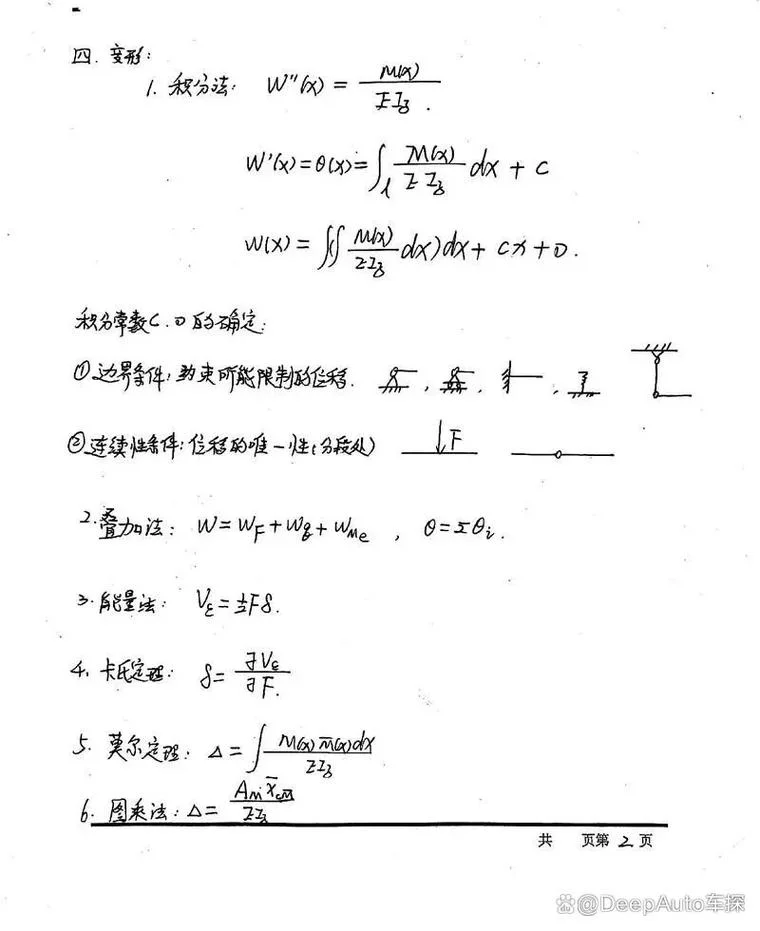 四. 变形:
1. 积分法: W''(x) = M(x)/EI₃.
W'(x) = θ(x) = ∫ₗ M(x)/EI₃ dx + C
W(x) = ∫(∫ M(x)/EI₃ dx)dx + Cx + D.
积分常数C.D的确定:
①边界条件: 约束所能限制的位移.
②连续性条件: 位移的唯一性(分段处) F
2. 叠加法: W = W_F + W_q + W_Me , θ = Σθᵢ.
3. 能量法: V_ε = ½Fδ.
4. 卡氏定理: δ = ∂V_ε/∂F.
5. 莫尔定理: Δ = ∫ M(x) m̅(x)dx/EI₃
6. 图乘法: Δ =
共 页第 2 页
@DeepAuto车探